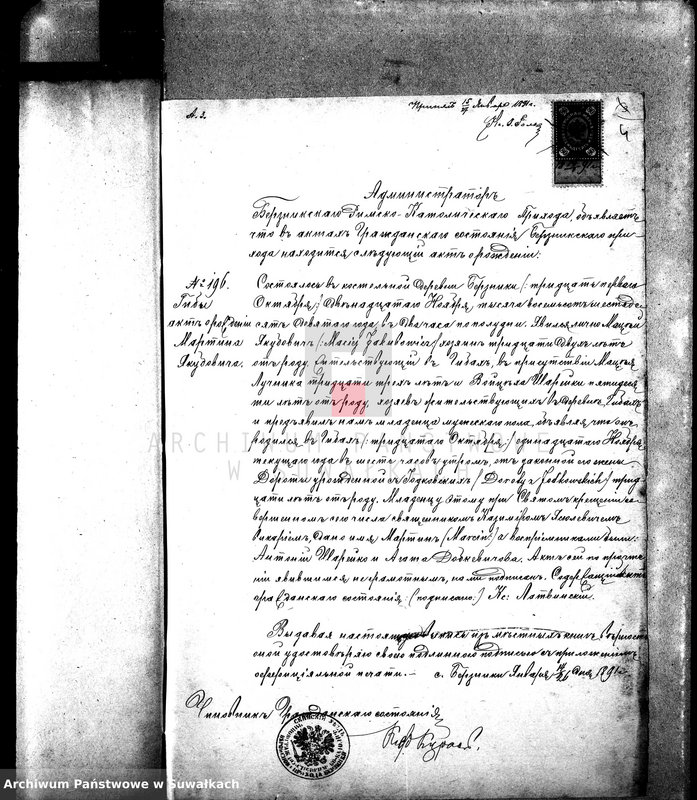 А. 3.
Принято 15/27 Января 1891 г.
Администраторъ
Берзникскаго Римско-Католическаго Прихода, объявляетъ
что въ актахъ Гражданскаго состоянія Берзникскаго при
хода находится слѣдующій актъ о рожденіи:
№ 196.
Гибы
актъ о рожденіи
Мартина
Якубовича.
Состоялось въ костельной деревнѣ Берзники (: тридцать перваго
Октября :) двѣнадцатаго Ноября, тысяча восемьсотъ шестьде
сятъ девятаго года, въ два часа по полудни. Явился лично Мацей
Якубовичъ (Maciej Jakubowicz) хозяинъ тридцати двухъ лѣтъ
отъ роду, жительствующій въ Гибахъ, въ присутствіи Мацея
Лучника тридцати трехъ лѣтъ и Войцѣха Шарейки пятидеся
ти лѣтъ отъ роду, хозяевъ жительствующихъ въ деревнѣ Гибахъ
и предъявилъ намъ младенца мужескаго пола, объявляя, что онъ
родился въ Гибахъ (: тридцатаго Октября :) одинадцатаго Ноября
текущаго года въ шесть часовъ утромъ, отъ законной его жены
Дороты урожденной съ Годковскихъ (Doroty z Jodkowskich) трид
цати лѣтъ отъ роду. Младенцу этому при Святомъ крещеніи со
вершенномъ сего числа священникомъ Казимѣромъ
Викаріемъ, дано имя Мартинъ (Marcin) а воспріемниками были:
Антоній Шарейко и Агата Довкевичова. Актъ сей по прочте
ніи явившимся неграмотнымъ, нами подписанъ. Содержащій актъ
гражданскаго состоянія: (подписано:) Кс: Литвинскій.
Выдавая настоящую изъ мѣстныхъ книгъ, вѣрность
оной удостовѣряю своею подлинною подписью съ приложеніемъ
оффиціяльной печати. — с. Берзники Января 14/26 дня 1891 г.
Чиновникъ Гражданскаго состоянія
ARCHIWUM PAŃSTWOWE
W SUWAŁKACH
Archiwum Państwowe w Suwałkach